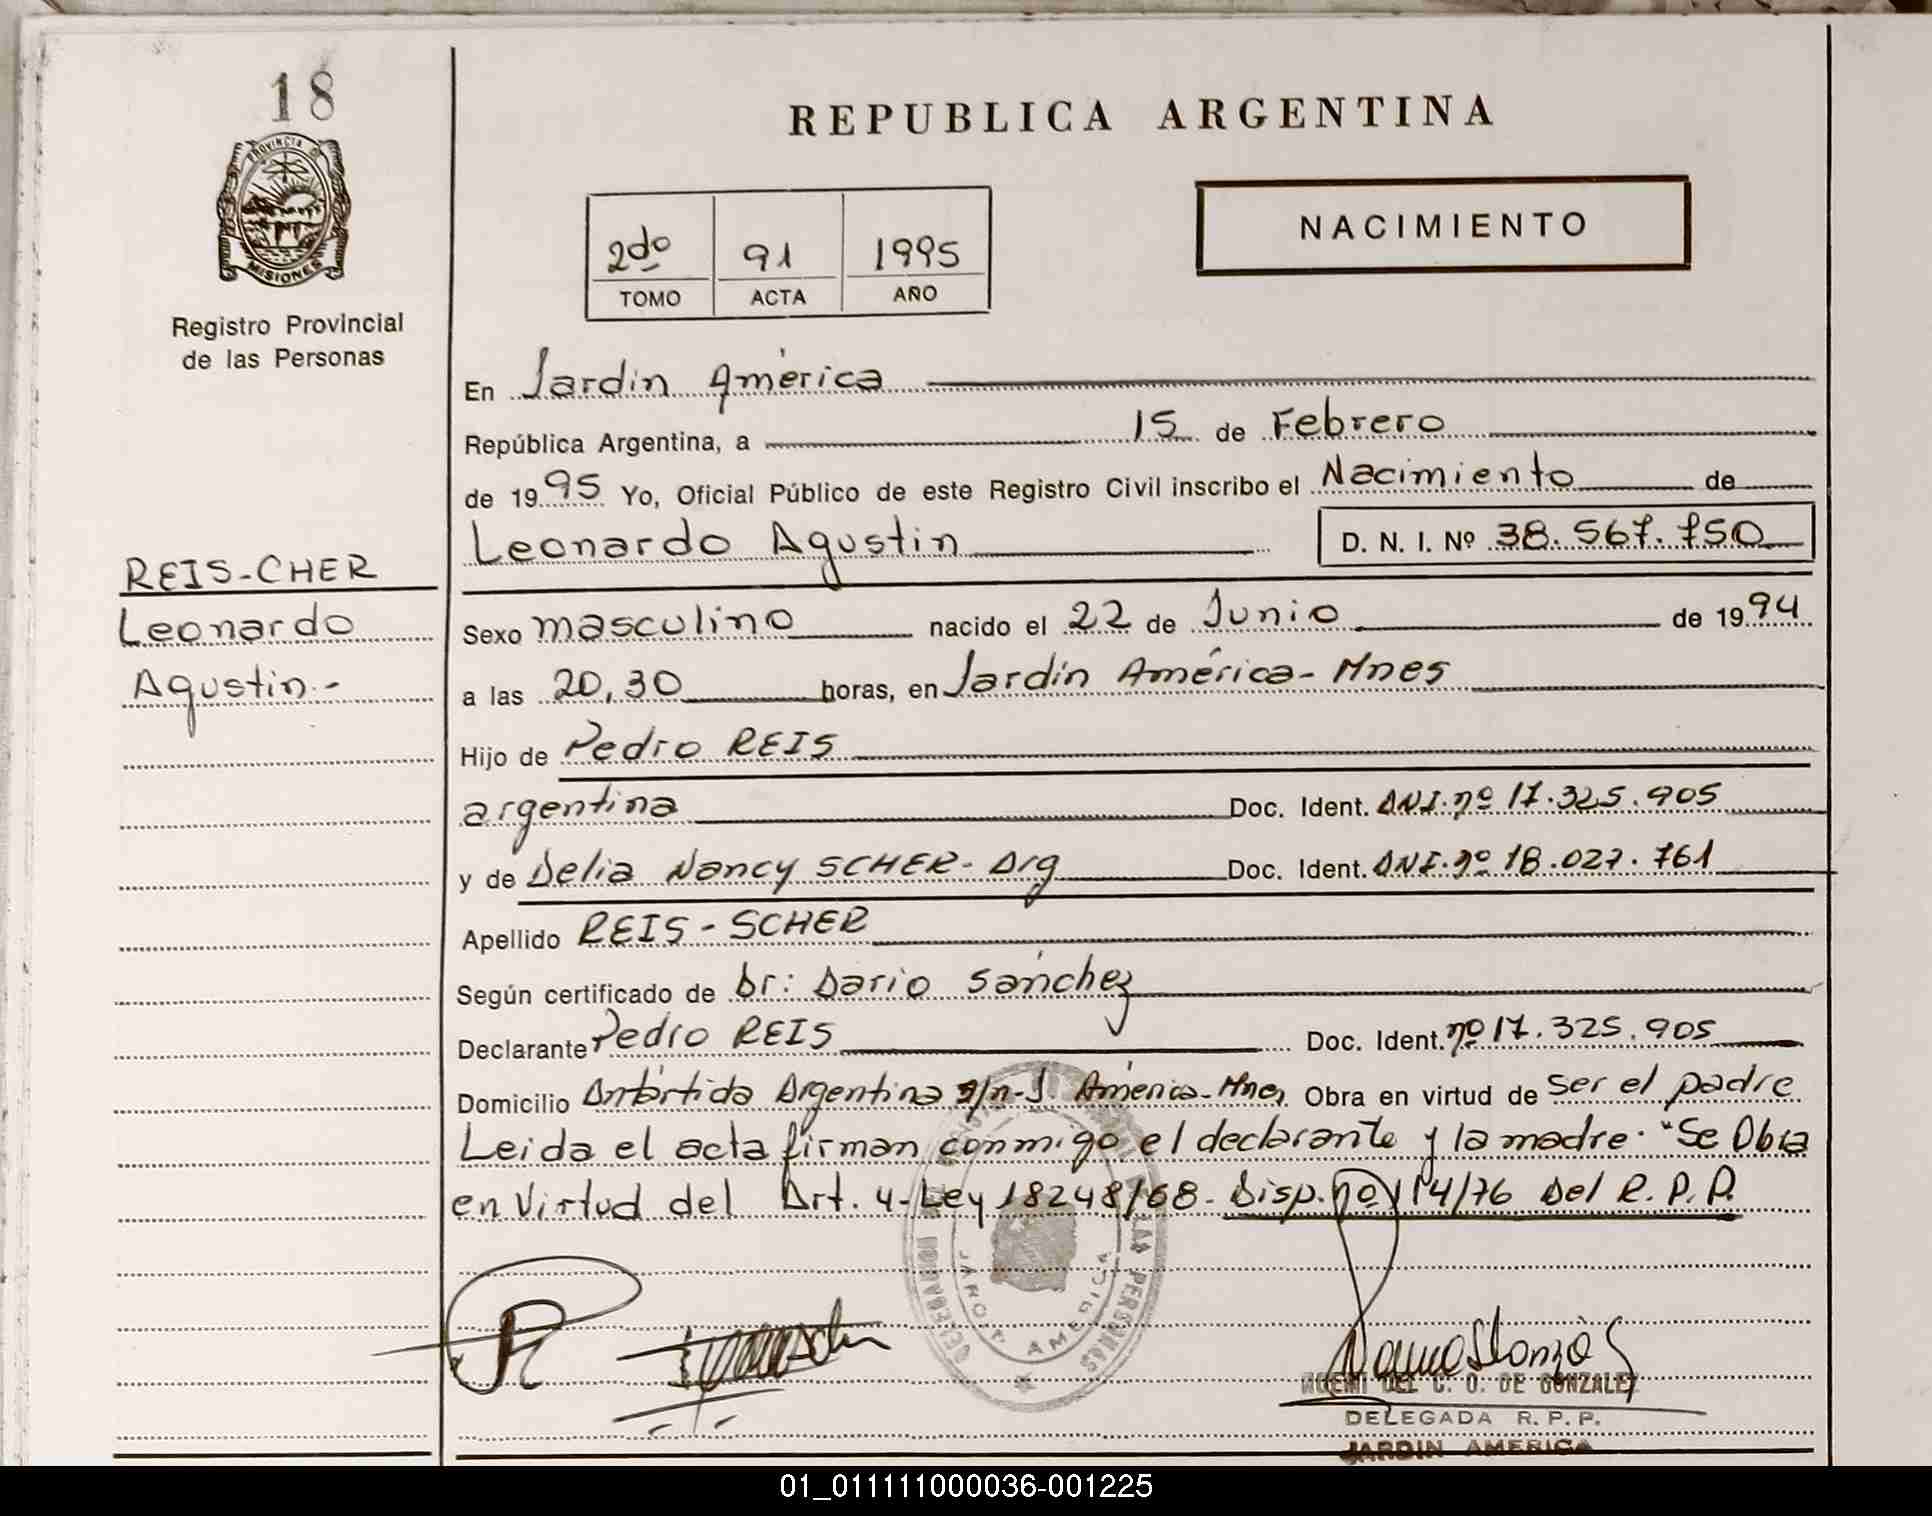 18
PROVINCIA D
MISIONES
Registro Provincial
de las Personas
REIS-CHER
Leonardo
Agustin.-
REPUBLICA ARGENTINA
2do 91 1995
TOMO ACTA AÑO
NACIMIENTO
En Jardin América
República Argentina, a 15 de Febrero
de 1995 Yo, Oficial Público de este Registro Civil inscribo el Nacimiento de
Leonardo Agustin D. N. I. Nº 38.567.750
Sexo masculino nacido el 22 de Junio de 1994
a las 20,30 horas, en Jardín América- Mnes
Hijo de Pedro REIS
argentina Doc. Ident. DNI. nº 17.325.905
y de Delia Nancy SCHER- Arg Doc. Ident. DNI. nº 18.027.761
Apellido REIS - SCHER
Según certificado de Dr: Dario Sánchez
Declarante Pedro REIS Doc. Ident. nº 17.325.905
Domicilio Antártida Argentina s/n-J. América-Mnes Obra en virtud de ser el padre
Leida el acta firman conmigo el declarante y la madre. "Se Obra
en Virtud del Art. 4-Ley 18248/68- Disp. nº 114/76 Del R.P.P.
JARDIN AMERICA
DE GONZALEZ
DELEGADA R. P. P.
JARDIN AMERICA
01_011111000036-001225